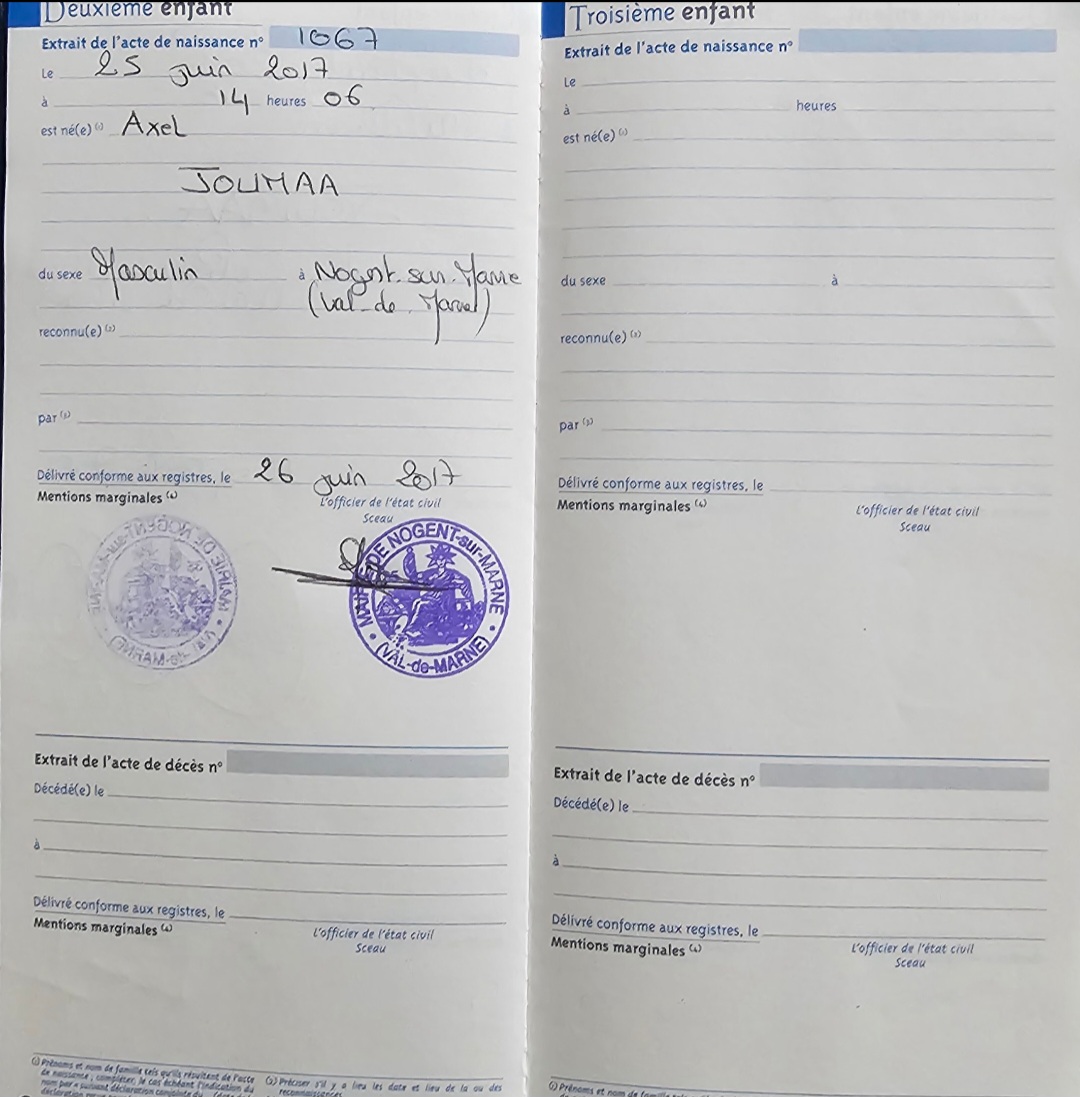 Deuxième enfant
Extrait de l'acte de naissance n° 1067
Le 25 juin 2017
à 14 heures 06
est né(e) (1) Axel
JOUMAA
du sexe Masculin à Nogent-sur-Marne
(Val-de-Marne)
reconnu(e) (2)
par (3)
Délivré conforme aux registres, le 26 juin 2017
Mentions marginales (4)
L'officier de l'état civil
Sceau
MAIRIE DE NOGENT-sur-MARNE
(VAL-de-MARNE)
Extrait de l'acte de décès n°
Décédé(e) le
à
Délivré conforme aux registres, le
Mentions marginales (4)
L'officier de l'état civil
Sceau
(1) Prénoms et nom de famille tels qu'ils résultent de l'acte
de naissance ; compléter, le cas échéant l'indication du
nom par « suivant déclaration conjointe du
(2) Préciser s'il y a lieu les date et lieu de la ou des
reconnaissances
Troisième enfant
Extrait de l'acte de naissance n°
Le
à heures
est né(e) (1)
du sexe à
reconnu(e) (2)
par (3)
Délivré conforme aux registres, le
Mentions marginales (4)
L'officier de l'état civil
Sceau
Extrait de l'acte de décès n°
Décédé(e) le
à
Délivré conforme aux registres, le
Mentions marginales (4)
L'officier de l'état civil
Sceau
(1) Prénoms et nom de famille